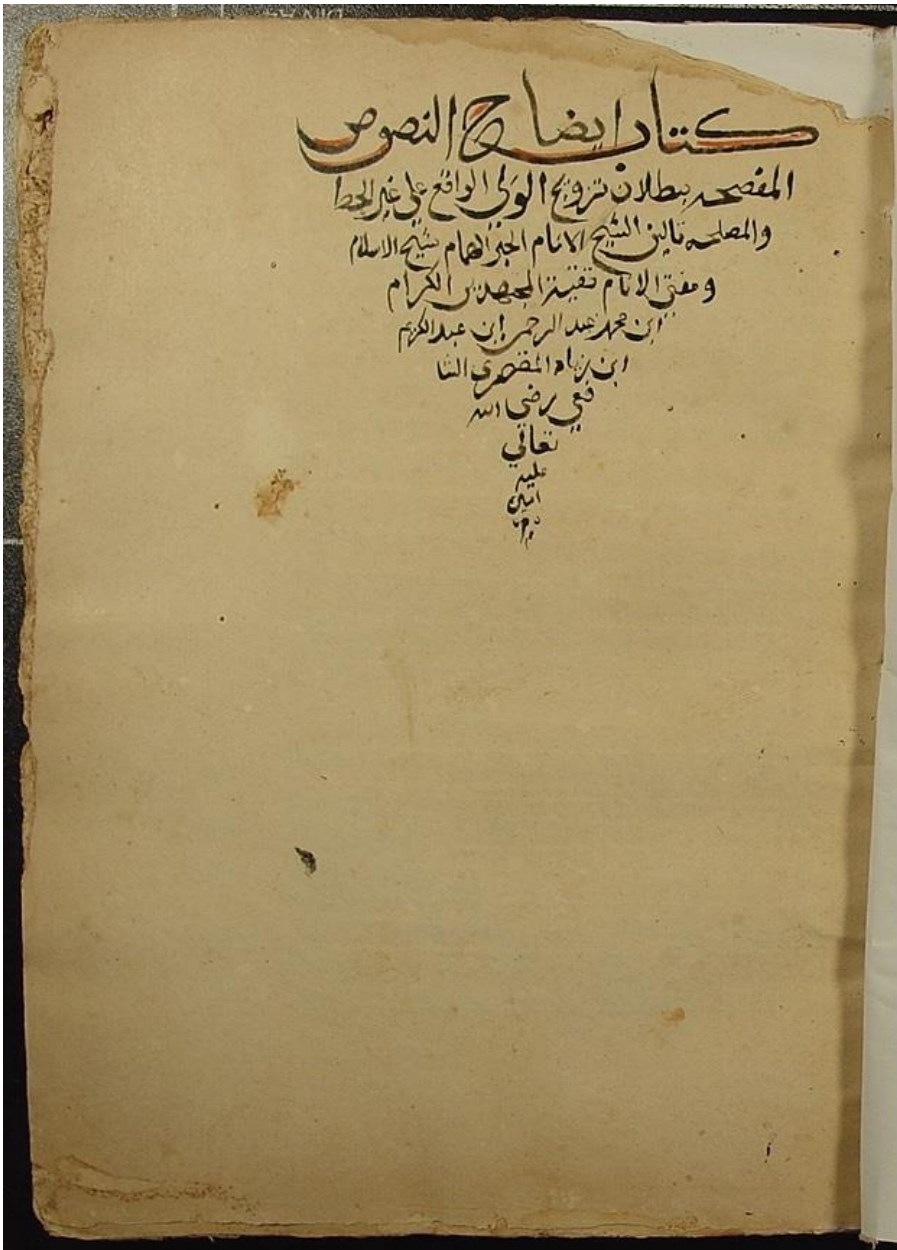 كتاب ايضاح النصوص
المفصحه ببطلان تزويج الولى الواقع على غير الحظ
والمصلحه تاليف الشيخ الامام الحبر الهمام شيخ الاسلام
ومفتي الانام بقية المجتهدين الكرام
ابن محمد عبد الرحمن ابن عبد الكريم
ابن زياد المقصري الشا
فعي رضي الله
تعالي
عليه
امين
م